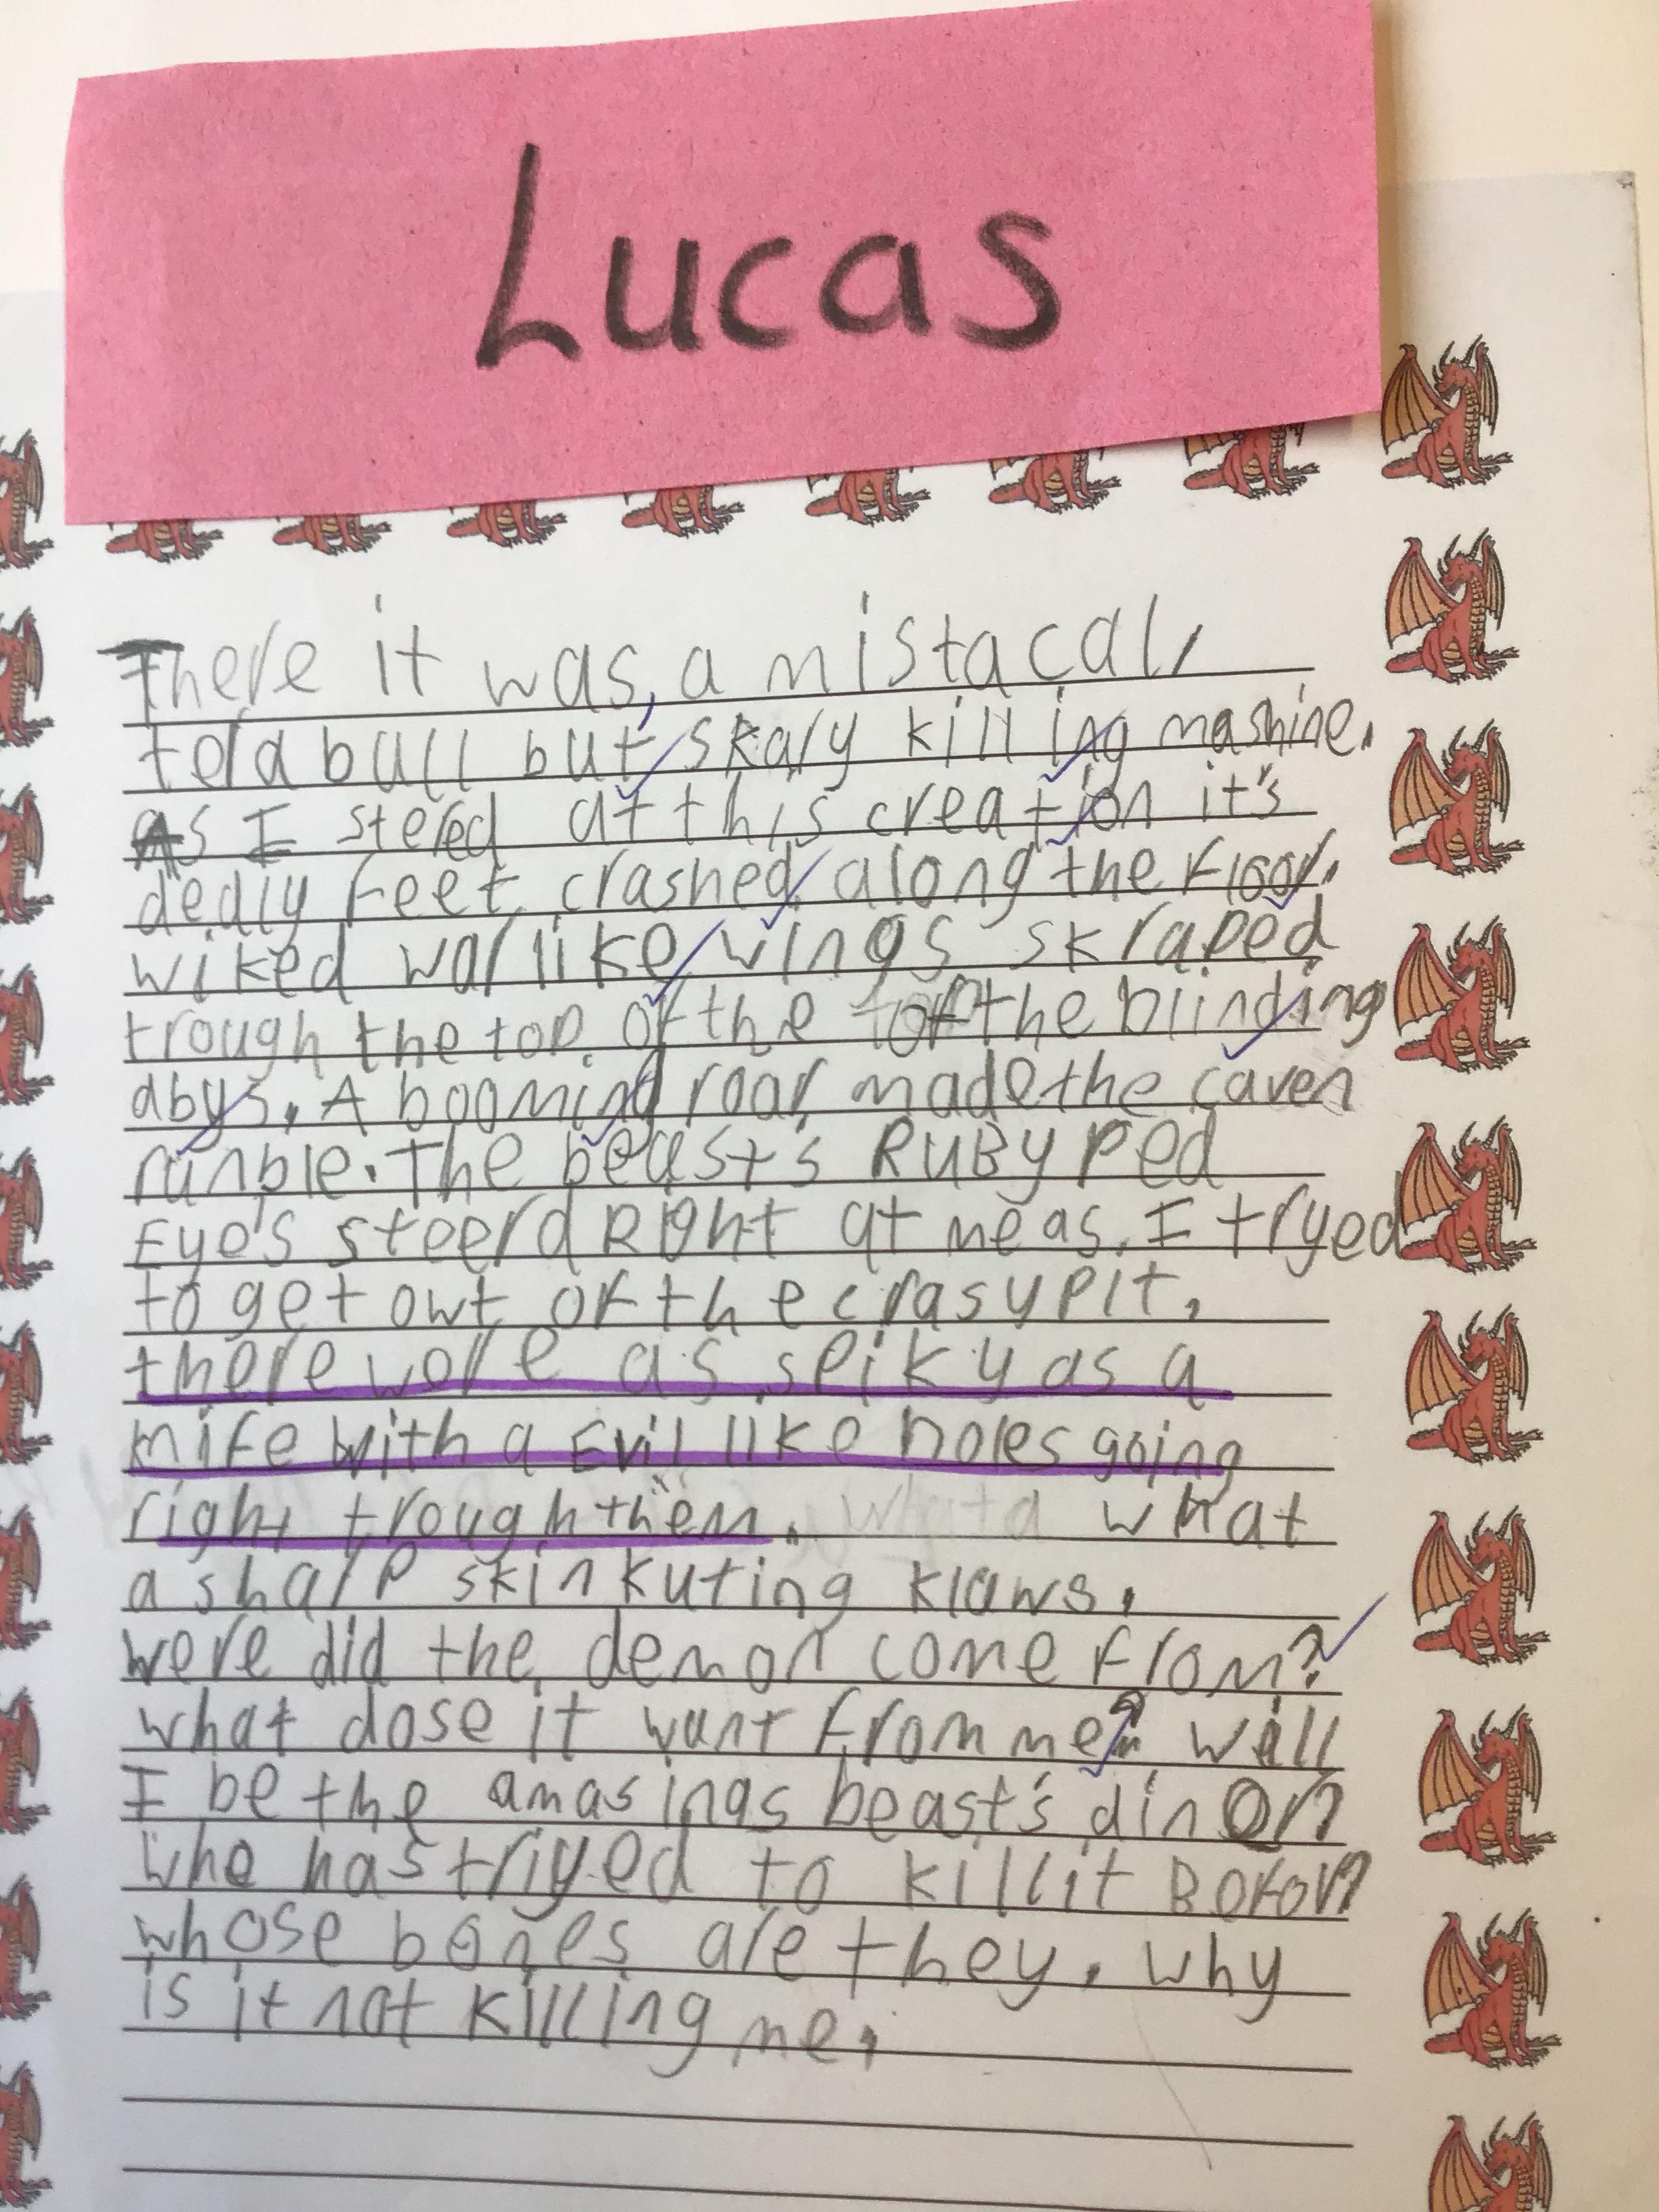 Lucas
There it was, a mistacal,
terabull but skary killing mashine.
As I stered at this creation it's
dedly feet crashed along the floor.
wiked warlike wings skraped
trough the top of the of the blinding
abys. A booming roar made the caven
runble. The beast's RUBy Red
Eye's steerd Right at me as I tryed
to get owt of the crasy pit.
there wore as speiky as a
nife with a Evil like holes going
right trough them. what
a sharp skin kuting klaws.
were did the demon come from?
what dose it want from me? will
I be the amasings beast's dinor?
who has triyed to kill it Befor?
whose bones are they. why
is it not killing me.